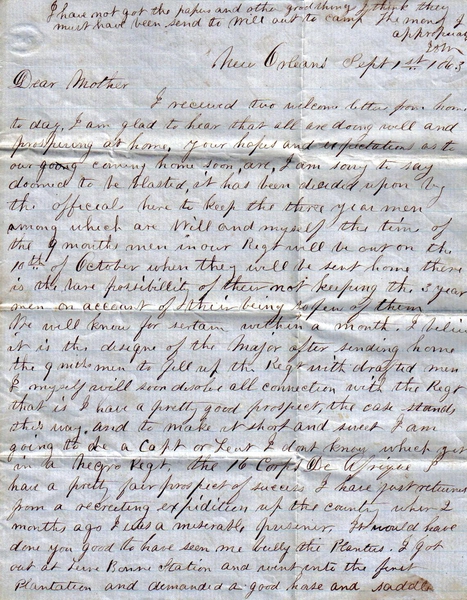 I have not got the papers and other good things I think they
must have been send to Will out to camp The money I
appropriate
New Orleans Sept 1st 1863
Dear Mother
I received two welcome letters from home
to day, I am glad to hear that all are doing well and
prospering at home, your hopes and expectations as to
our going coming home soon, are, I am sorry to say
doomed to be blasted, it has been decided upon by
the officials here to keep the three year men
among which are Will and myself the time of
the 9 months men in our Regt will be out on the
10th of October when they will be sent home there
is the bare possibility of their not keeping the 3 year
men on account of their being so few of them
We will know for sertain within a month. I believe
it is the designe of the Major after sending home
the 9 months men to fill up the Regt with drafted men
I myself will soon disolve all connection with the Regt
that is I have a pretty good prospect, the case stands
this way. and to make it short and sweet I am
going to be a Capt or Lieut I dont know which yet
in a Negro Regt, the 16 Corps De Afrique I
have a pretty fair prospect of success I have just returned
from a recruting expidition up the country wher 2
months ago I was a miserable prisoner. It would have
done you good to have seen me bully the Planters. I got
out at Terre Bonne Station and went into the first
Plantation and demanded a good horse and saddle